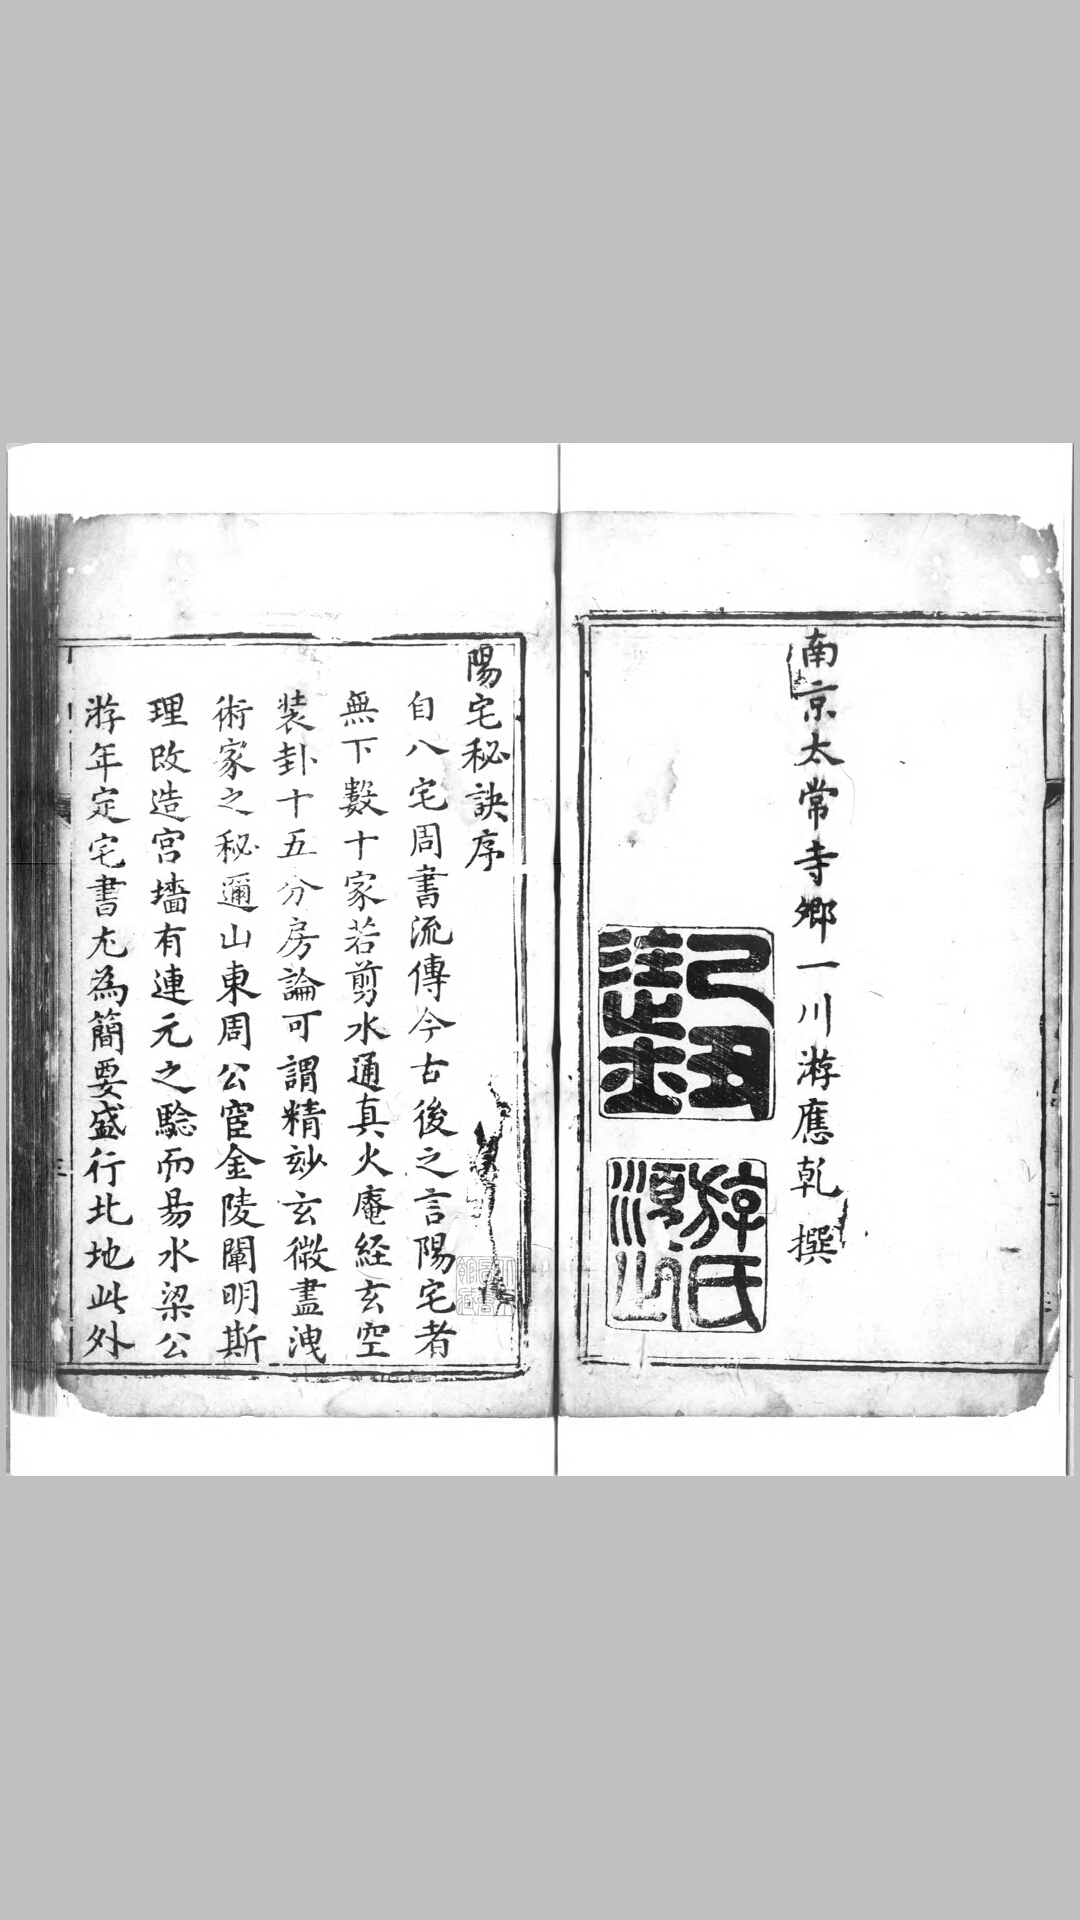 南京太常寺鄉一川游應乾撰
游氏
陽宅秘訣序
自八宅周書流傳今古後之言陽宅者
無下數十家若剪水通真火庵経玄空
装卦十五分房論可謂精妙玄微盡洩
術家之秘邇山東周公宦金陵闡明斯
理改造宮墻有連元之驗而易水梁公
游年定宅書尤為簡要盛行北地此外